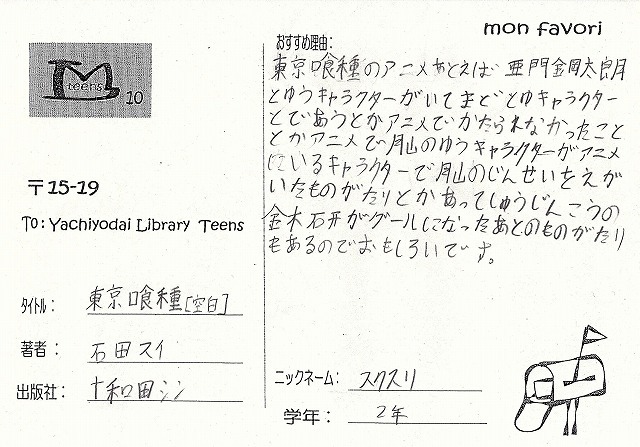 mon favori
teens
10
〒15-19
To: Yachiyodai Library Teens
タイトル: 東京喰種[空白]
著者: 石田スイ
出版社: 十和田シン
おすすめ理由:
東京喰種のアニメあとえば 亜門金岡太朗
とゆうキャラクターがいてまどとゆキャラクター
とであうとかアニメでかたられなかったこと
とかアニメで月山のゆうキャラクターがアニメ
にいるキャラクターで月山のじんせいをえが
いたものがたりとかあってしゅうじんこうの
金木石开がグールになったあとのものがたり
もあるのでおもしろいです。
ニックネーム: スクスリ
学年: 2年